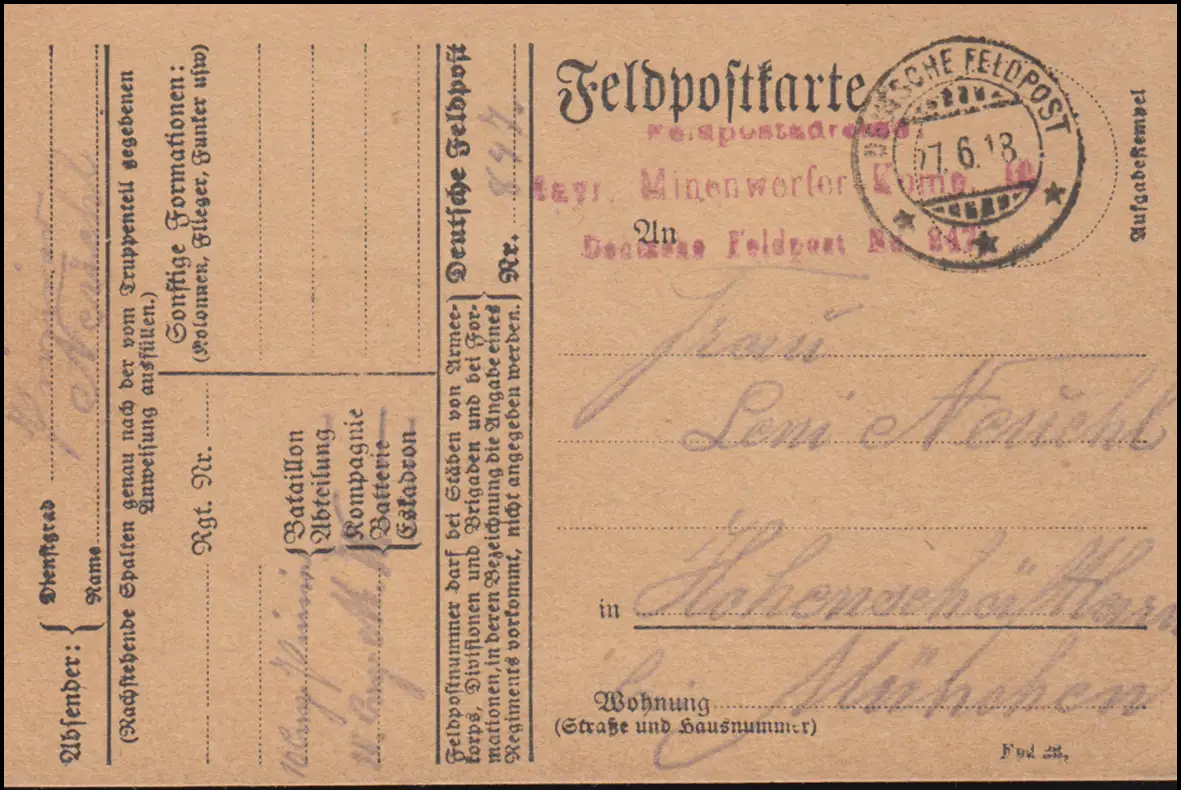 Absender:
Dienstgrad
Name Neuchl
(Nachstehende Spalten genau nach der vom Truppenteil gegebenen
Anweisung ausfüllen.)
Sonstige Formationen:
(Kolonnen, Flieger, Funker usw)
Rgt. Nr.
Bataillon
Abteilung
Kompagnie
Batterie
Eskadron
Deutsche Feldpost
Nr. 847.
Feldpostnummer darf bei Stäben von Armee-
korps, Divisionen und Brigaden und bei For-
mationen, in deren Bezeichnung die Angabe eines
Regiments vorkommt, nicht angegeben werden.
Feldpostkarte
DEUTSCHE FELDPOST
27.6.18
Aufgabestempel
Feldpostadresse:
Bayr. Minenwerfer Komp. 16
Deutsche Feldpost No 847
An
Frau
Leni Neuchl
in Hohenschäftlarn
bei München
Wohnung
(Straße und Hausnummer)